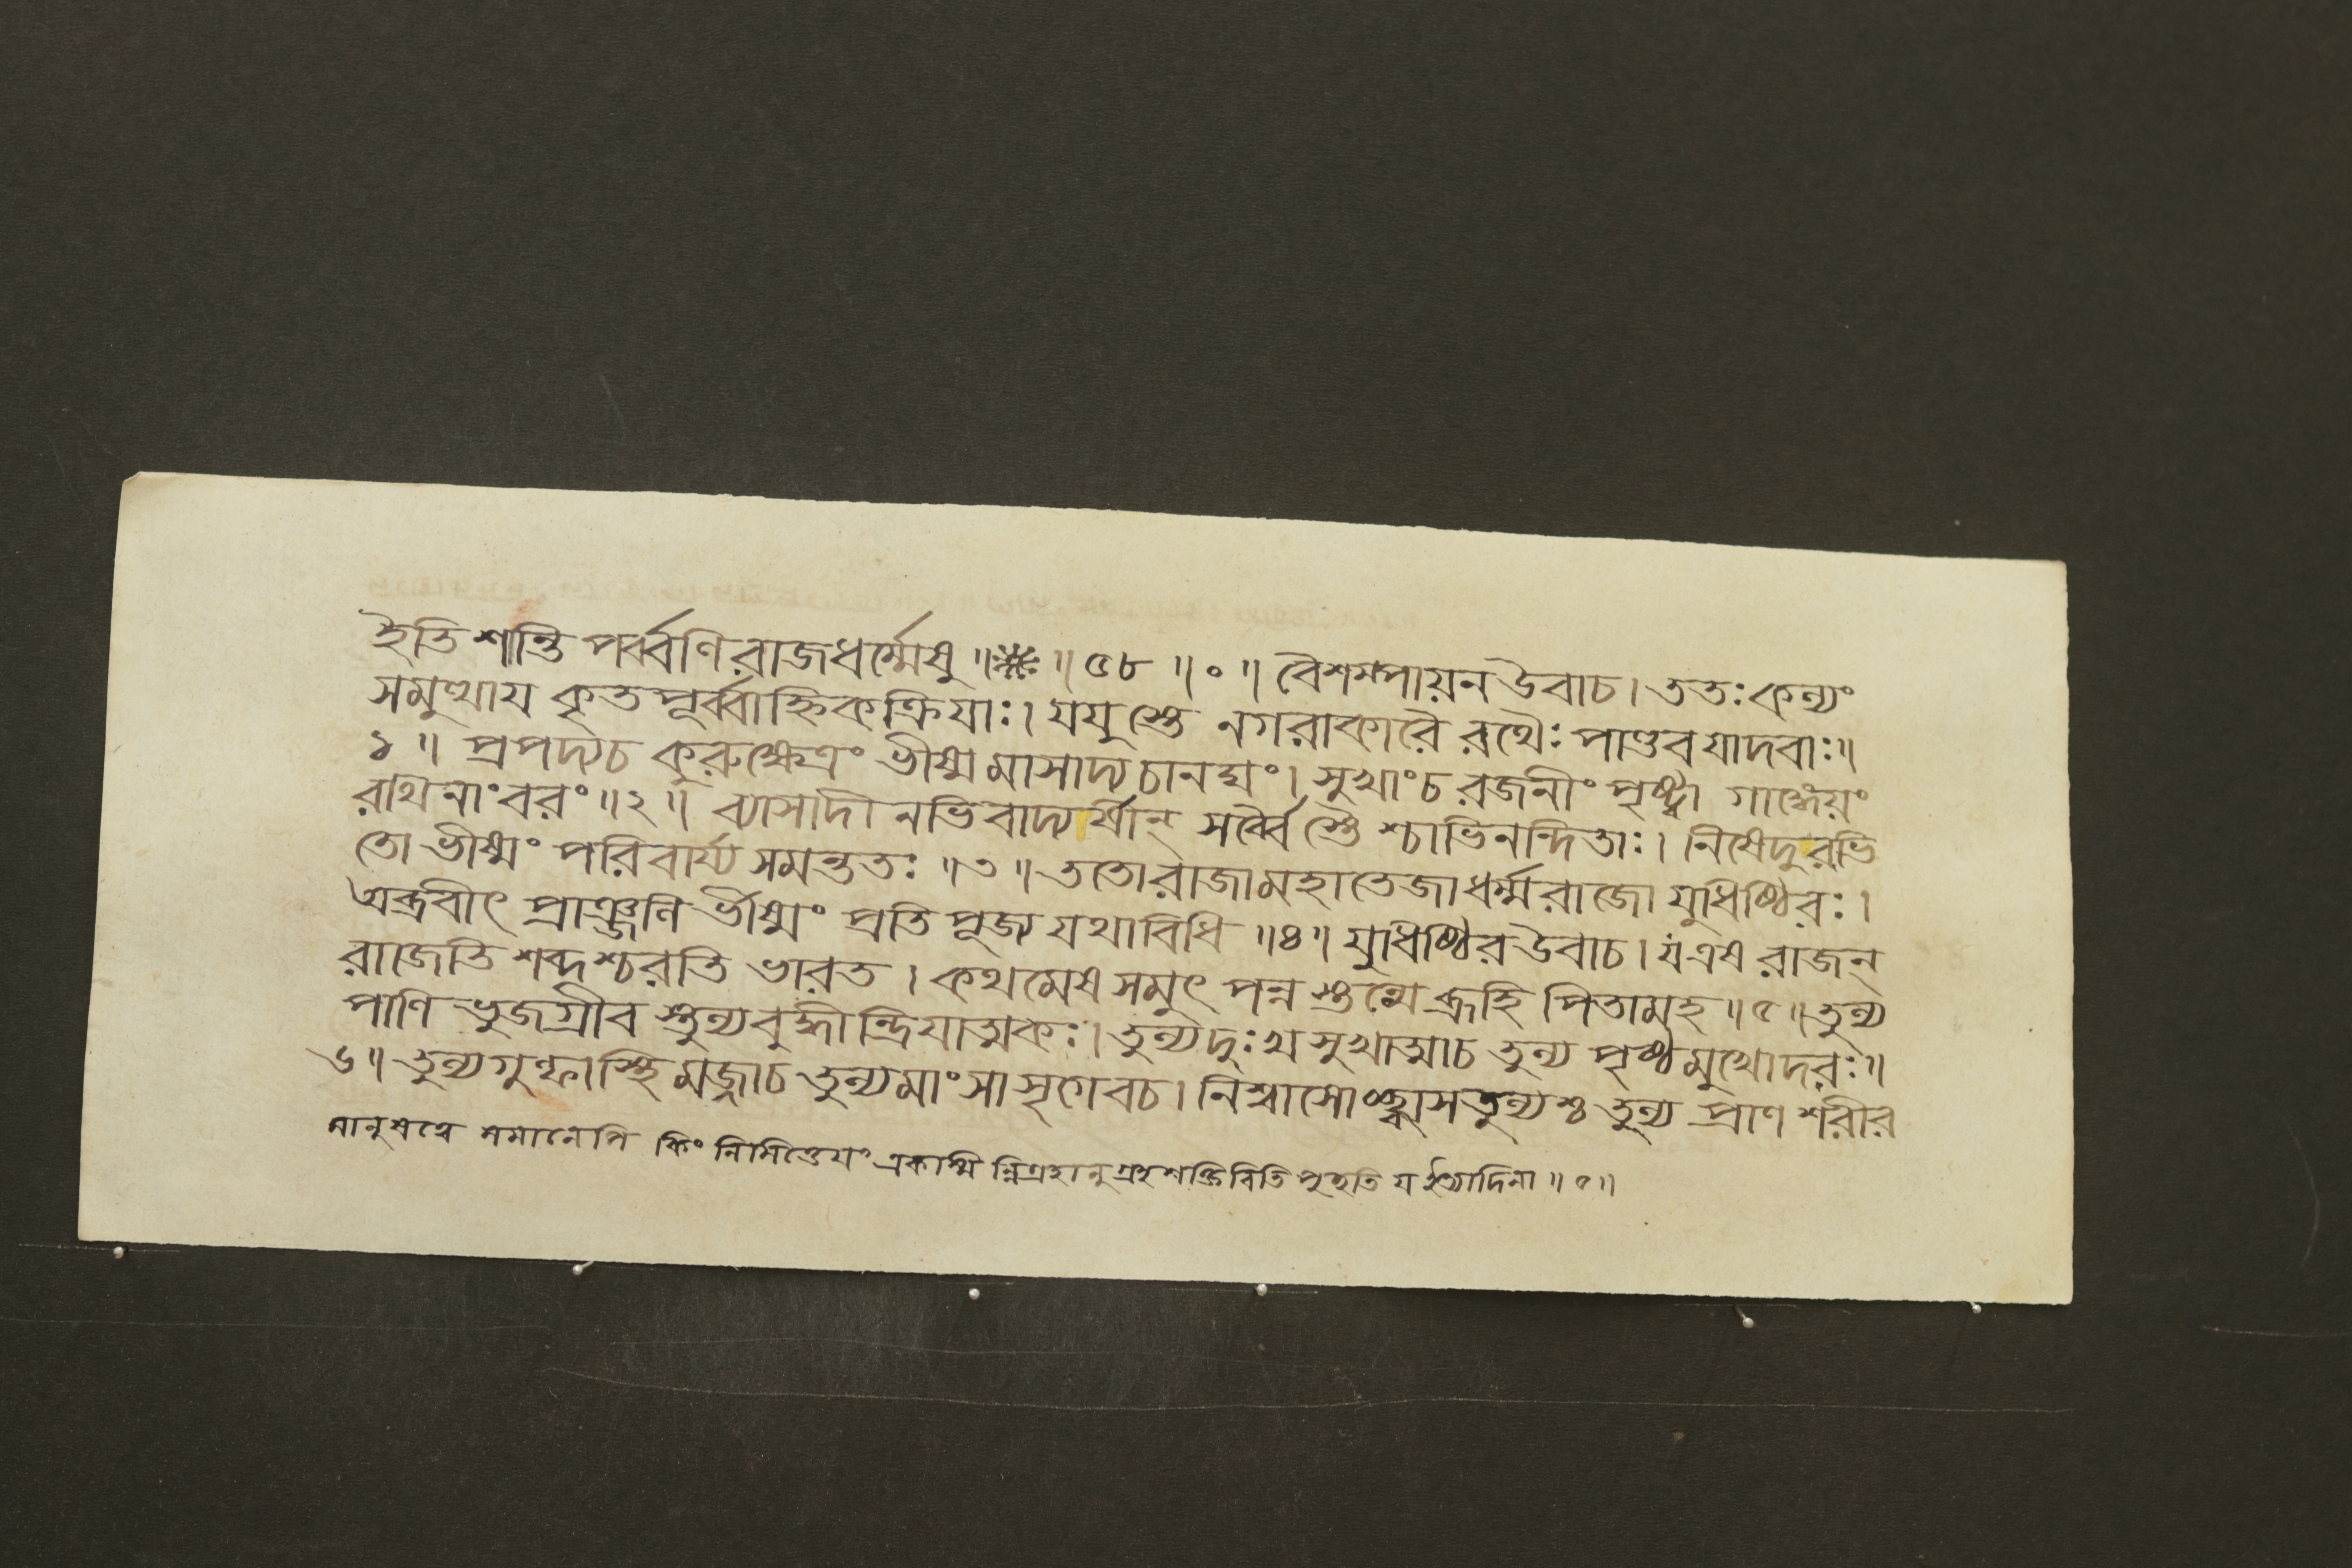 ইতি শান্তি পর্ব্বণি রাজধর্ম্মেষু ॥※॥ ৫৮ ॥ ० ॥ বৈশম্পায়ন উবাচ । ততঃ কল্যং
সমুত্থায কৃত পূর্ব্বাহ্নিকক্রিযাঃ । যযুস্তে নগরাকারৈ রথৈঃ পাণ্ডবযাদবাঃ ॥
১ ॥ প্রপদ্যচ কুরুক্ষেত্রং ভীষ্মমাসাদ্য চানঘং । সুখাংচ রজনীং পৃষ্ট্বা গাঙ্গেয়ং
রথিনাংবরং ॥২॥ ব্যাসাদী নভিবাদ্যর্ষীন্ সর্ব্বৈ স্তৈ শ্চাভিনন্দিতাঃ । নিষেদুরভি
তো ভীষ্মং পরিবার্য্য সমন্ততঃ ॥৩॥ ততোরাজামহাতেজাধর্ম্মরাজো যুধিষ্ঠিরঃ ।
অব্রবীৎ প্রাঞ্জলি র্ভীষ্মং প্রতি পূজ্য যথাবিধি ॥৪॥ যুধিষ্ঠির উবাচ । য এষ রাজন্
রাজেতি শব্দশ্চরতি ভারত । কথমেষ সমুৎ পন্ন স্তন্মে ব্রূহি পিতামহ ॥৫॥ তুল্য
পাণি ভুজগ্রীব স্তুল্যবুদ্ধীন্দ্রিযাত্মকঃ । তুল্যদুঃখ সুখাত্মাচ তুল্য পৃষ্ঠমুখোদরঃ ॥
৬॥ তুল্যশুক্রাস্থি মজ্জাচ তুল্যমাংসাসৃগেবচ । নিশ্বাসোচ্ছ্বাসতুল্যশ্চ তুল্য প্রাণ শরীর
মানুষত্বে সমানেপি কিং নিমিত্তেযং একস্মি ন্নিগ্রহানুগ্রহশক্তিরিতি পৃচ্ছতি য ইত্যাদিনা ॥৫॥